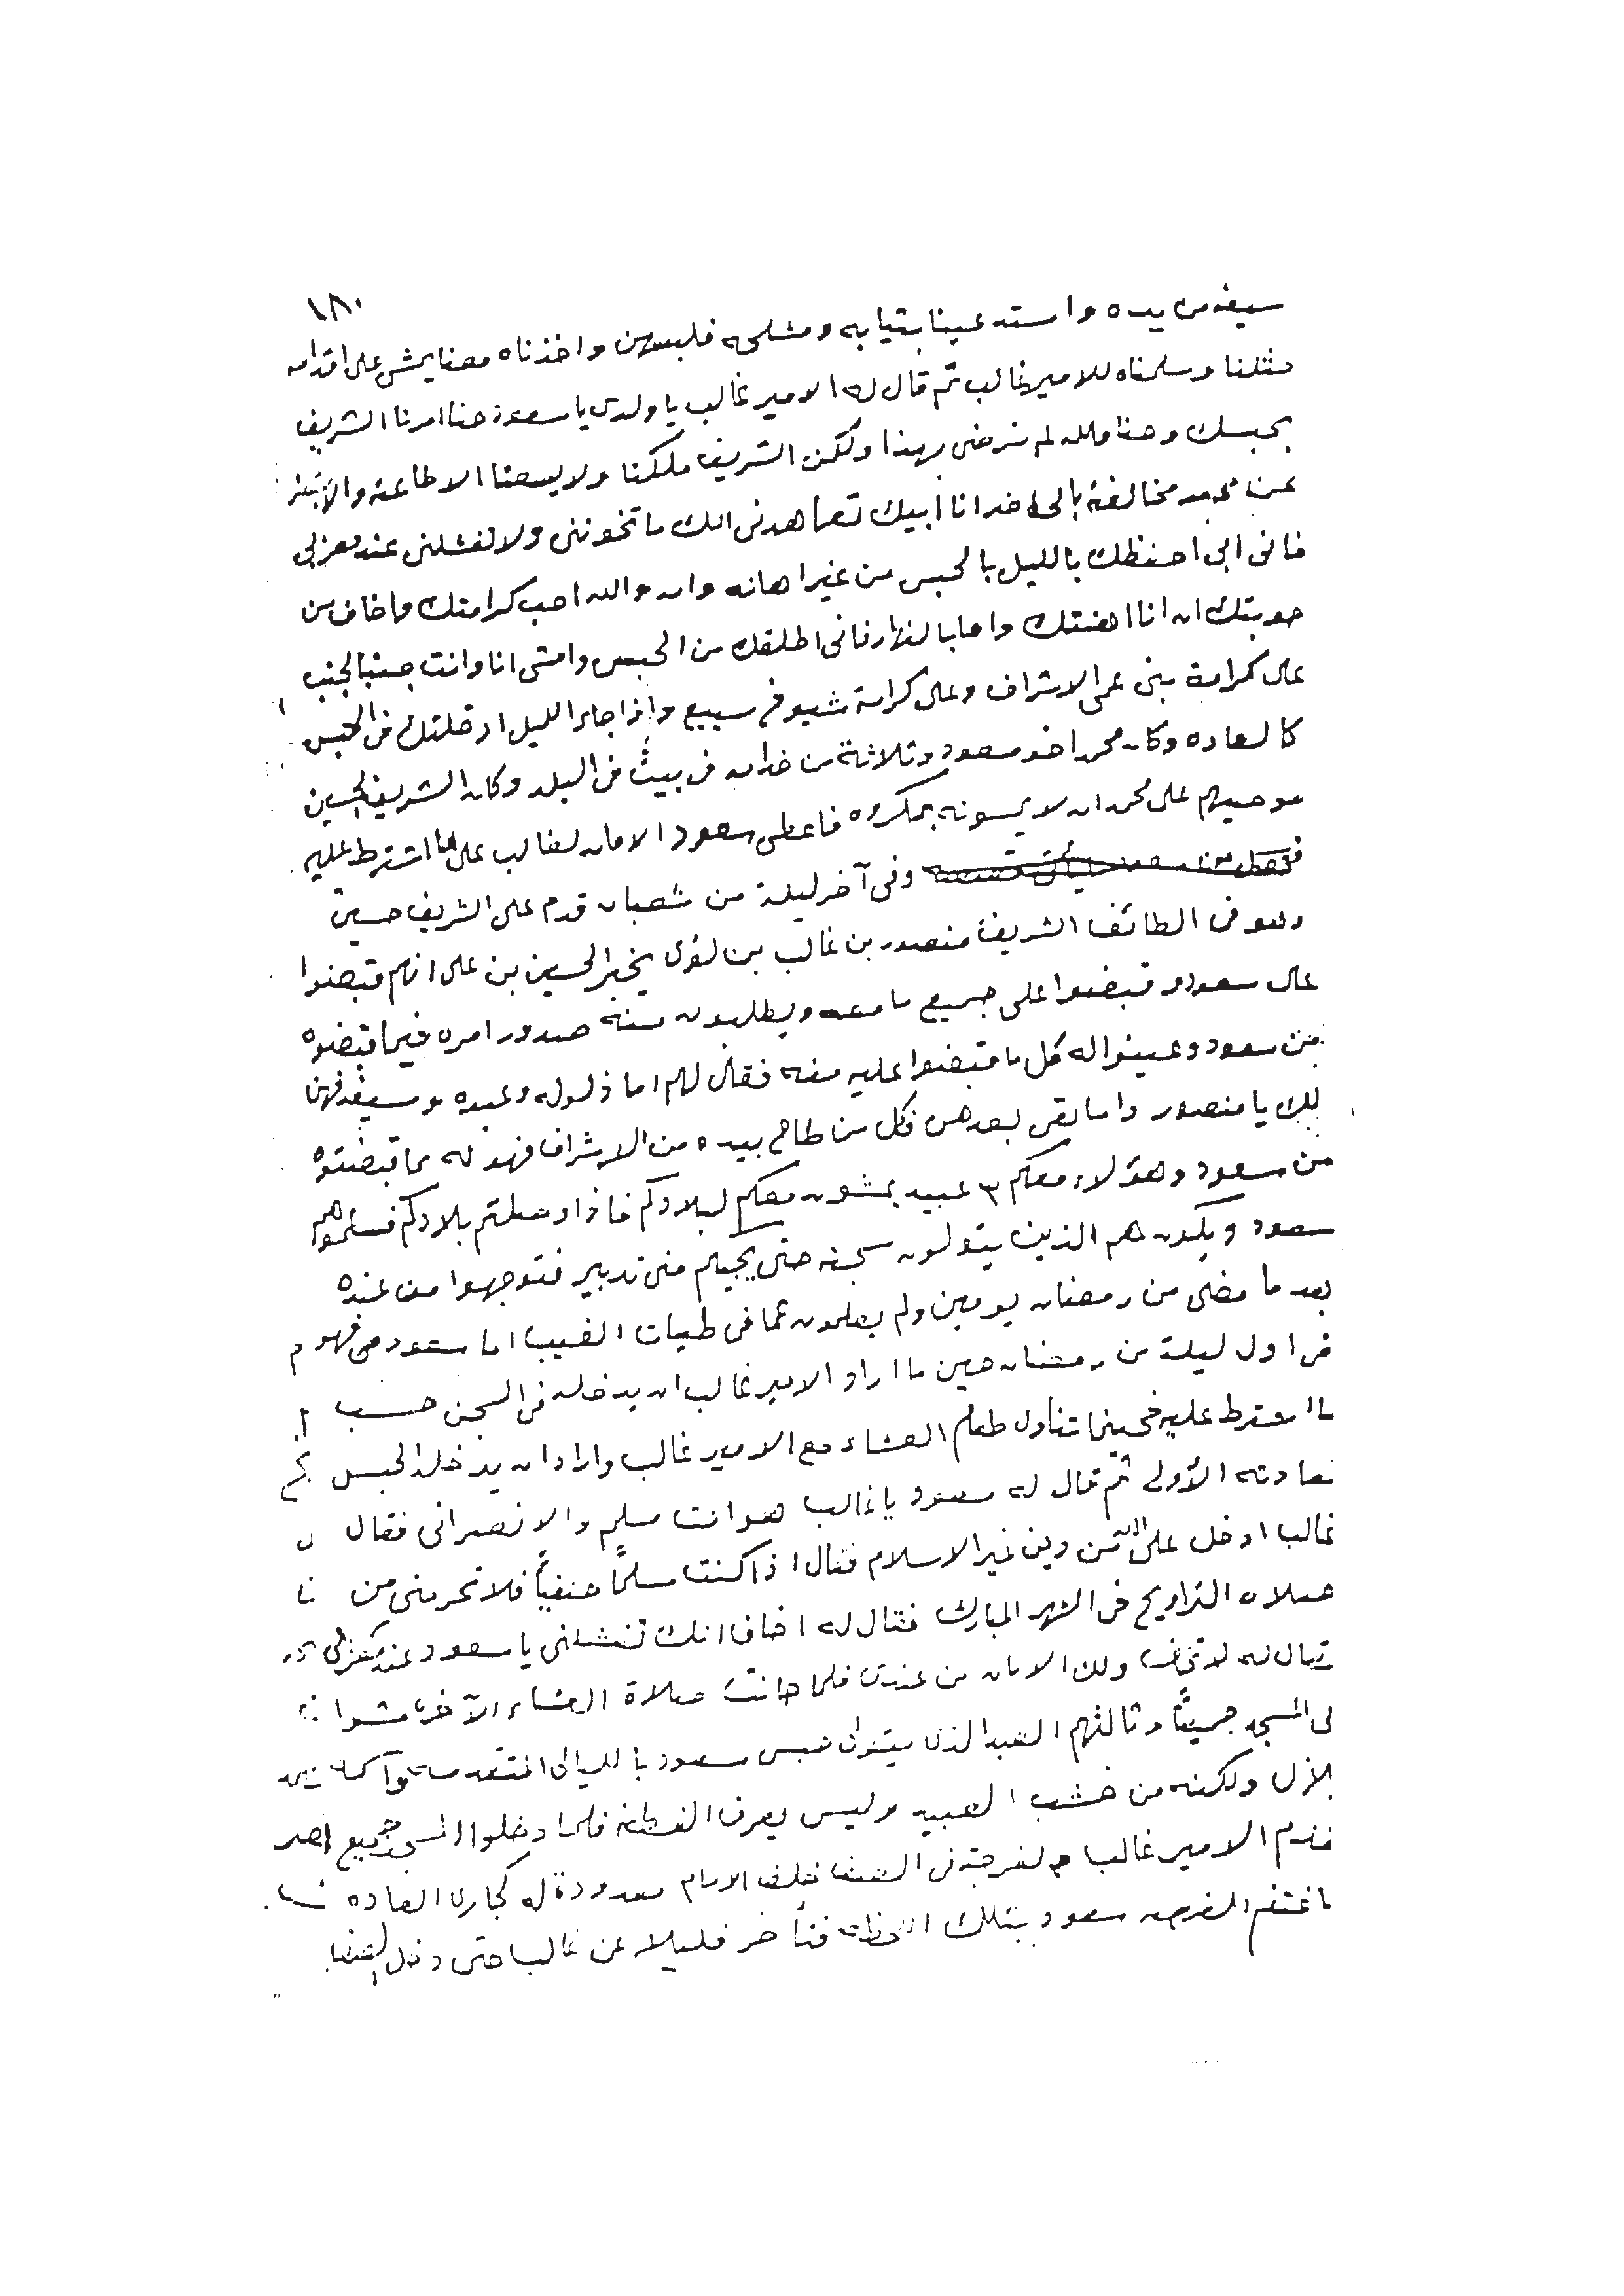 ١٨٠
سيفه من يده واستدعينا بثيابه ومشلحه فلبسهن واخذناه معنا يمشي على اقدامه
مثلنا وسلمناه للامير غالب ثم قال له الامير غالب يا ولدي يا سعود حنا امرنا الشريف
بحبسك وحنا والله لم نرضى بهذا ولكن الشريف ملكنا ولا يسعنا الا طاعته والا
عن مخالفة انا ابيك تعاهدني انك ما تخونني ولا تفشلني عند معزبي
فانني ابي احفظك بالليل بالحبس من غير اهانه وانا والله احب كرامتك واخاف من
حوبتك ان انا اهنتك واما بالنهار فاني اطلقك من الحبس وامشي انا وانت جنبا لجنب
على كرامة بني عمي الاشراف وعلى كرامة شيوخ سبيع واذا جاء الليل ادخلتك في الحبس
كالعاده وكان محمد اخو سعود وثلاثة من خدامه في بيت في البلد وكان الشريف الحسين
موصيهم على محمد ان لا يمسونه بمكروه فاعطى سعود الامان لغالب على ما اشترط عليه
وفي آخر ليلة من شعبان قدم على الشريف حسين
وهو في الطائف الشريف منصور بن غالب بن لؤي يخبر الحسين بن علي انهم قبضوا
على سعود وقبضوا على جميع ما معه ويطلبون منه صدور امره فيما قبضوه
من سعود وعينوا له كل ما قبضوا عليه منه فقال لهم اما ذلوله وعبده وسيفه فهن
لك يا منصور واما بقي بعدهن فكل من طاح بيده من الاشراف فهو له مما قبضتوه
من سعود وهؤلاء معكم ٣ عبيد يمشون معكم لبلادكم فاذا وصلتم بلادكم فسلموهم
سعود ويكون هم الذين يتولون سجنه حتى يجيكم مني تدبير فتوجهوا من عنده
بعد ما مضى من رمضان يومين ولم يعلمون عما في طيات الغيب اما سعود فهو
في اول ليلة من رمضان حين ما اراد الامير غالب ان يدخله في السجن حسب
ما اشترط عليه فحينما تناول طعام العشاء مع الامير غالب واراد ان يدخله الحبس
لعادته الأولى ثم قال له سعود يا غالب هو انت مسلم والا نصراني فقال
غالب ادخل على الله من دين غير الاسلام فقال اذا كنت مسلماً حنفياً فلا تحرمني من
صلاه التراويح في الشهر المبارك فقال له اخاف انك تفشلني يا سعود عند معزبي
قال له لا تخف ولك الامان من عندي فلما حانت صلاة العشاء الآخره مشوا
لى المسجد جميعاً وثالثهم العبد الذي يتولى حبس سعود بالليالي المتقدمه
ولكنه من خشب العبيد وليس يعرف الفطنه فلما دخلوا المسجد جميع
الامير غالب لفرجة في الصف خلف الامام معدودة له كجاري العاده
اغتنم الفرصه سعود بتلك اللحظه فتأخر قليلا عن غالب حتى دخل الصف